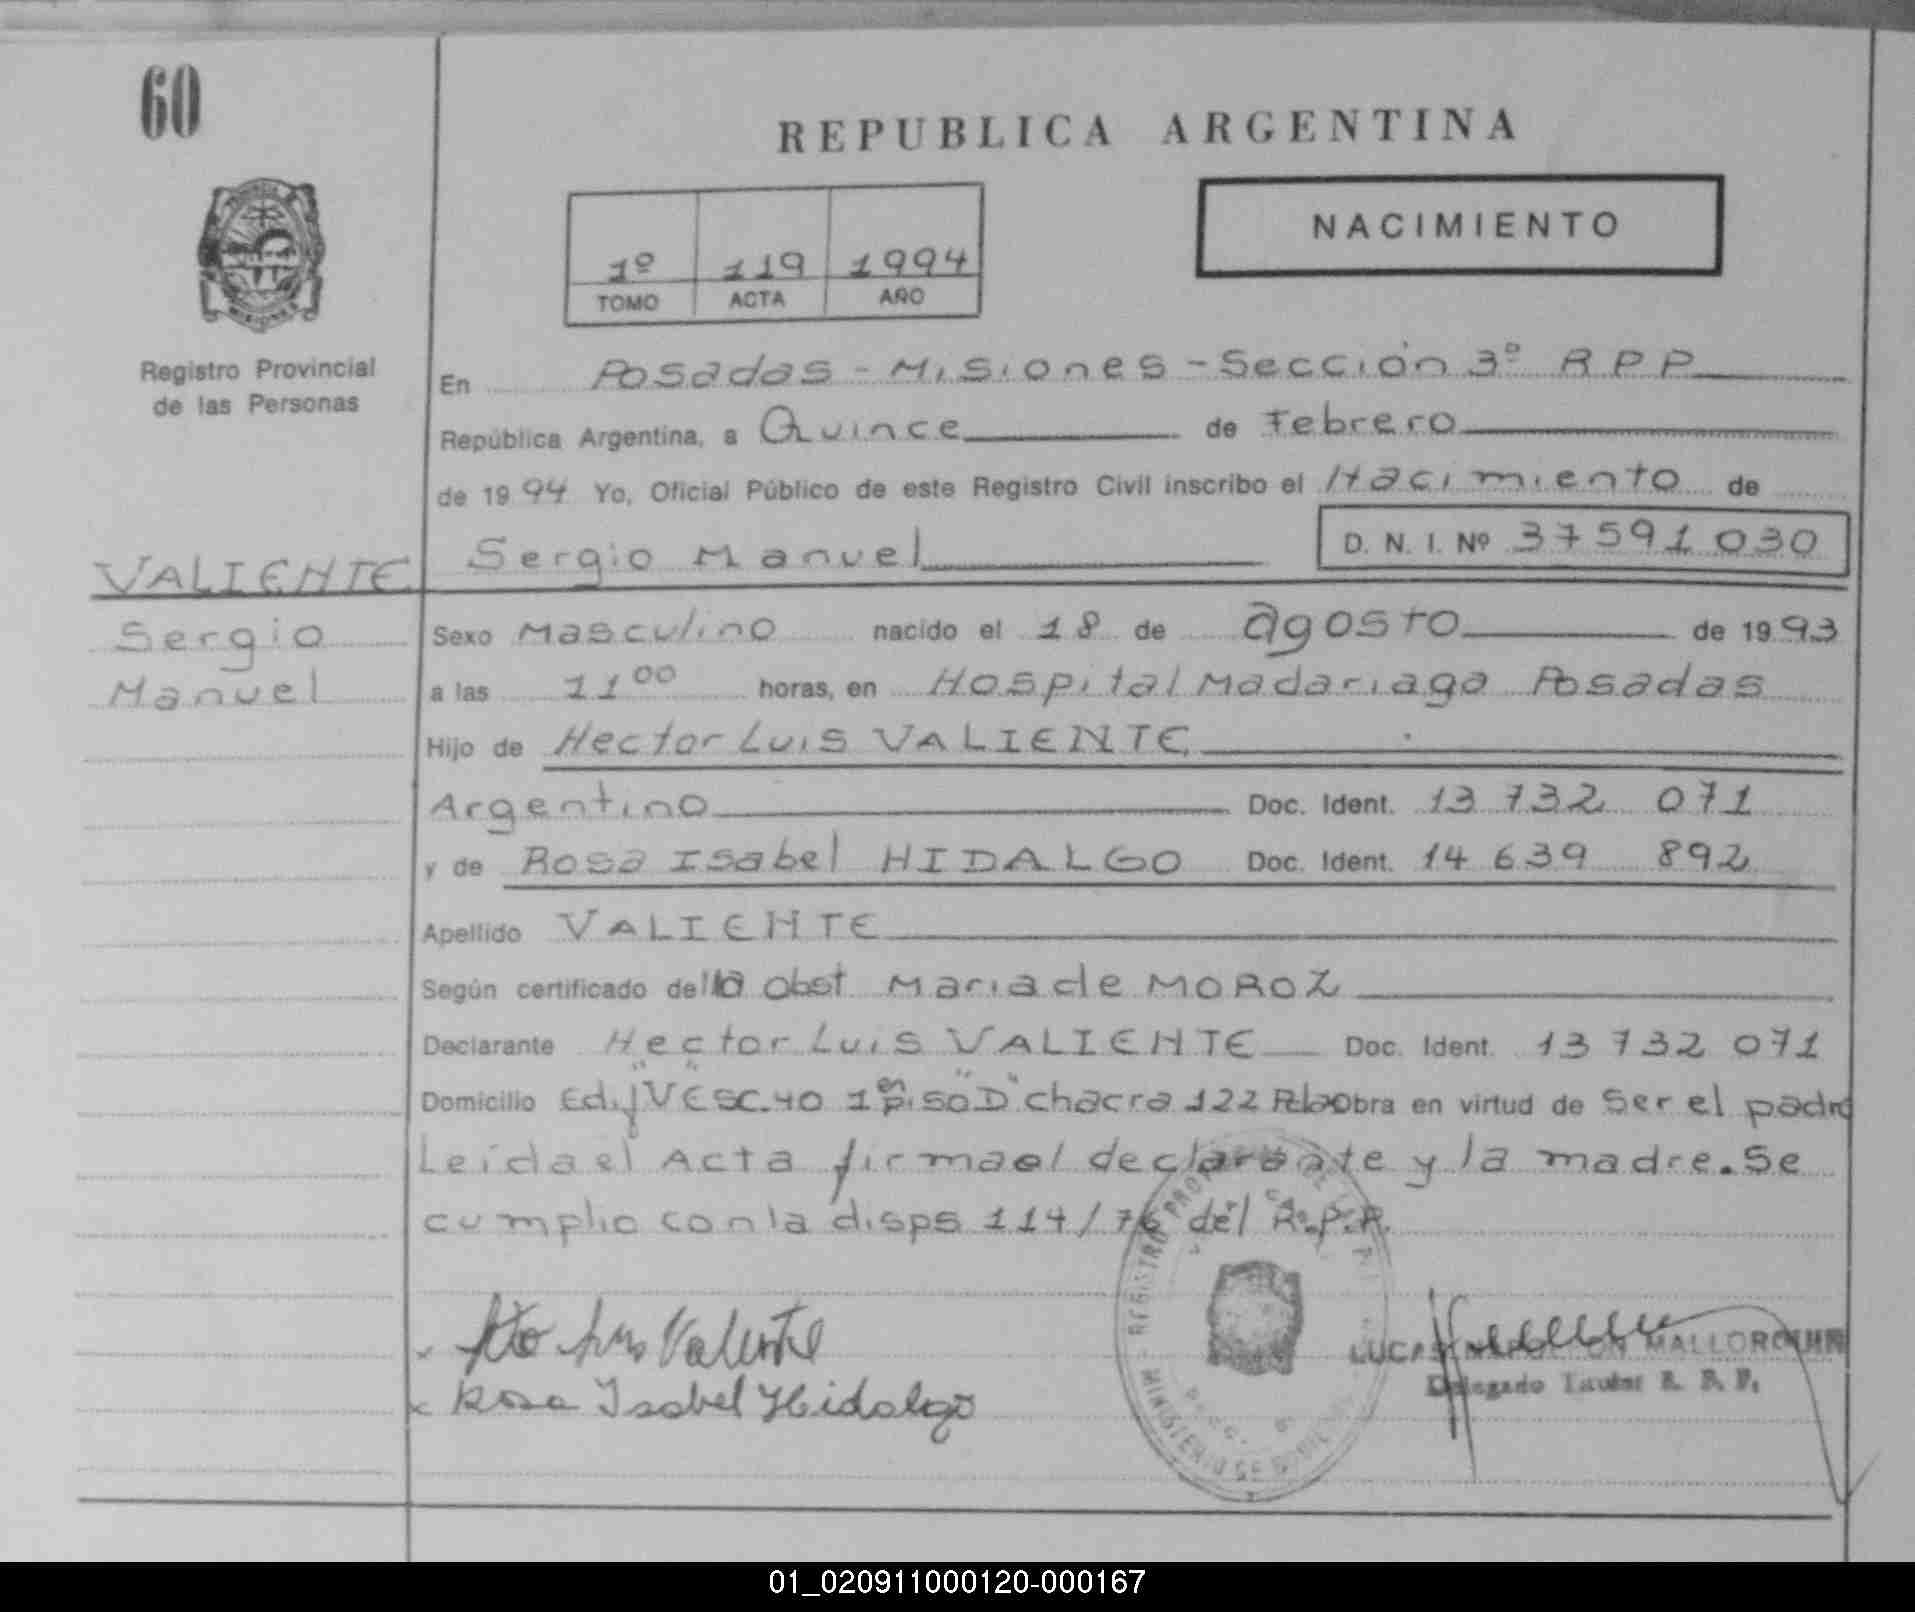 60
REPUBLICA ARGENTINA
NACIMIENTO
1º 119 1994
TOMO ACTA AÑO
Registro Provincial
de las Personas
En Posadas - Misiones - Sección 3º RPP
República Argentina, a Quince de Febrero
de 1994 Yo, Oficial Público de este Registro Civil inscribo el Nacimiento de
Sergio Manuel D. N. I. Nº 37591030
VALIENTE
Sergio
Manuel
Sexo Masculino nacido el 18 de agosto de 1993
a las 11 00 horas, en Hospital Madariaga Posadas
Hijo de Hector Luis VALIENTE
Argentino Doc. Ident. 13 732 071
y de Rosa Isabel HIDALGO Doc. Ident. 14 639 892
Apellido VALIENTE
Según certificado del la obst Maria de MOROZ
Declarante Hector Luis VALIENTE Doc. Ident. 13 732 071
Domicilio Ed. "V" Esc. 40 1er piso "D" chacra 122 obra en virtud de Ser el padre
Leida el Acta firma el declarante y la madre. Se
cumplio con la disps 114/76 del R.P.P.
Luis Valiente
Rosa Isabel Hidalgo
LUCAS NAPOLEON MALLORQUIN
Delegado Titular R. P. P.
REGISTRO PROV DE LAS
MINISTERIO DE GOBIERNO
01_020911000120-000167